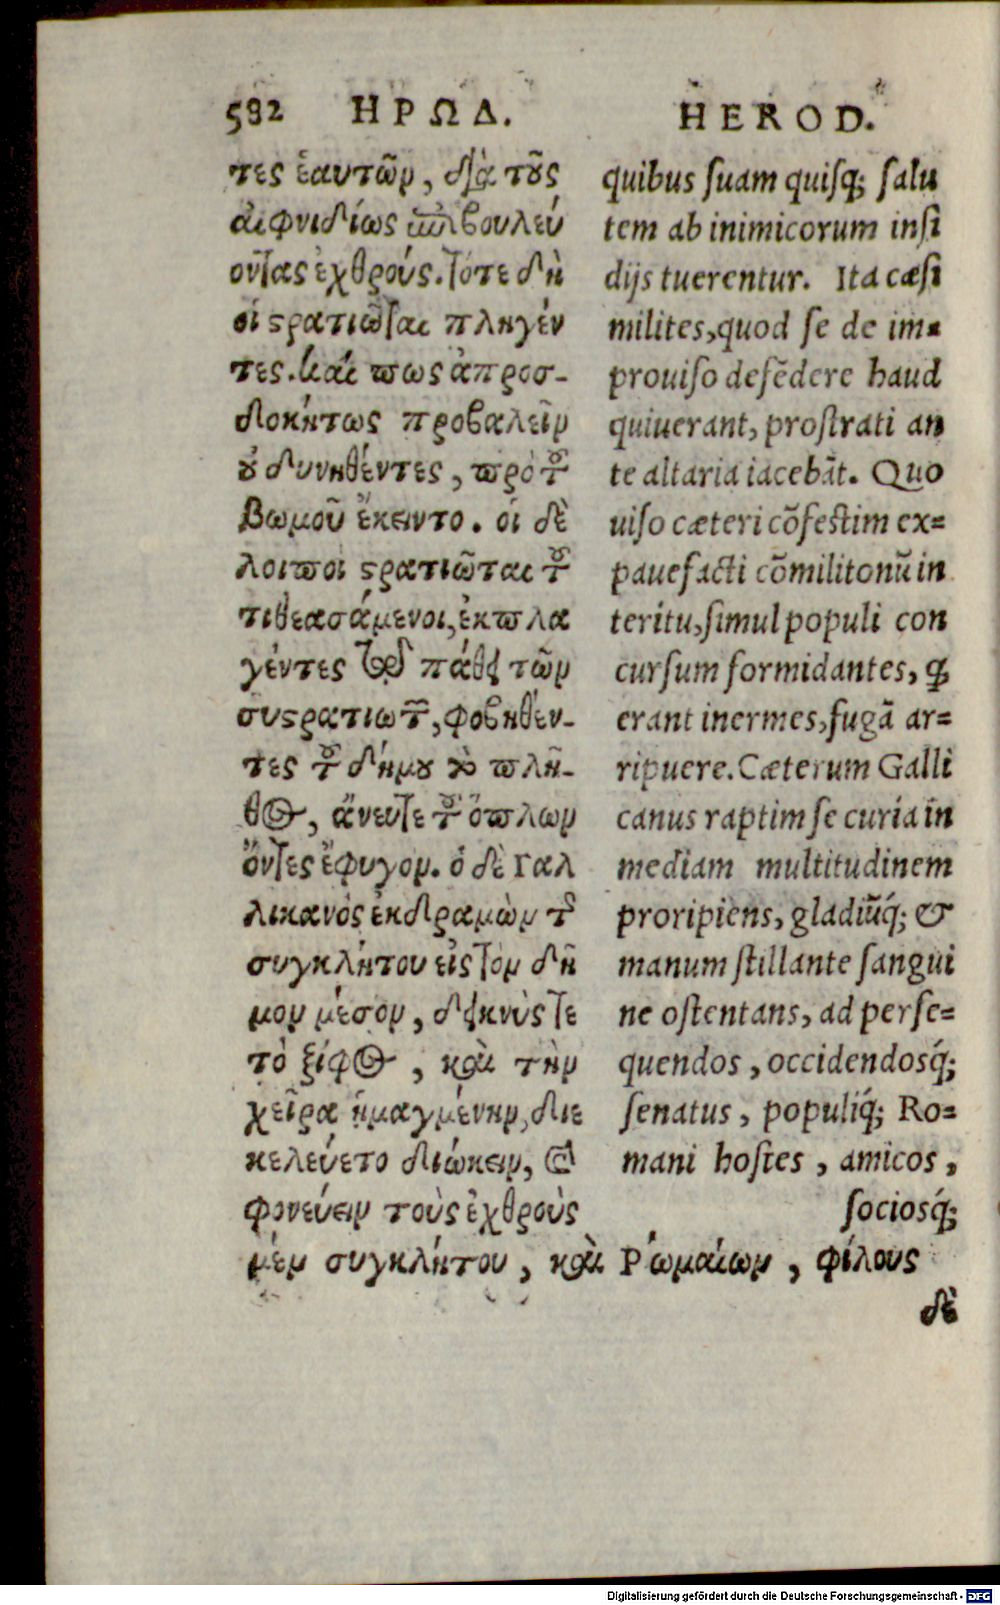 582 ΗΡΩΔ.
τες ἑαυτῶν, διὰ τοὺς
αἰφνιδίως ἐπιβουλεύ
οντας ἐχθρούς. τότε δὴ
οἱ στρατιῶται πληγέν
τες. καί πως ἀπροσ-
δοκήτως προβαλεῖν
οὐ δυνηθέντες, πρὸ τοῦ
βωμοῦ ἔκειντο. οἱ δὲ
λοιποὶ στρατιῶται τοῦ
τι θεασάμενοι, ἐκπλα
γέντες τῷ πάθει τῶν
συστρατιωτῶν, φοβηθέν-
τες τοῦ δήμου τὸ πλῆ-
θος, ἄνευτε τῶν ὅπλων
ὄντες ἔφυγον. ὁ δὲ Γαλ
λικανὸς ἐκδραμὼν τῆς
συγκλήτου εἰς τὸν δῆ
μον μέσον, δεικνύς τε
τὸ ξίφος, καὶ τὴν
χεῖρα ᾑμαγμένην, διε
κελεύετο διώκειν, καὶ
φονεύειν τοὺς ἐχθροὺς
μὲν συγκλήτου, καὶ Ῥωμαίων, φίλους
δὲ
HEROD.
quibus suam quisq; salu
tem ab inimicorum insi
dijs tuerentur. Ita cæsi
milites, quod se de im-
prouiso defēdere haud
quiuerant, prostrati an
te altaria iacebāt. Quo
uiso cæteri cōfestim ex=
pauefacti cōmilitonū in
teritu, simul populi con
cursum formidantes, ꝙ
erant inermes, fugā ar=
ripuere. Cæterum Galli
canus raptim se curia in
mediam multitudinem
proripiens, gladiūq́; &
manum stillante sangui
ne ostentans, ad perse=
quendos, occidendosq́;
senatus, populiq́; Ro=
mani hostes, amicos,
sociosq́;
Digitalisierung gefördert durch die Deutsche Forschungsgemeinschaft - DFG